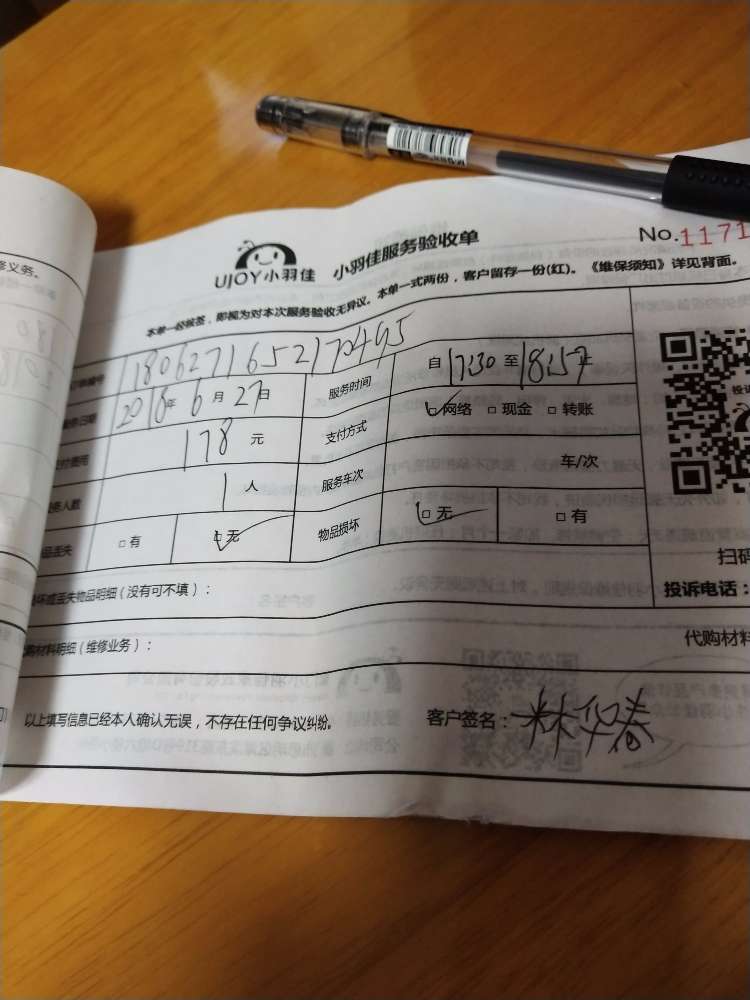 修义务。
UJOY小羽佳 小羽佳服务验收单 No.1171
本单一经核签，即视为对本次服务验收无异议。本单一式两份，客户留存一份(红)。《维保须知》详见背面。
订单编号 1806271652170495
2018年 6月 27日 服务时间 自 17:30 至 18:57止
178 元 支付方式 ☑网络 □现金 □转账
人数 1 人 服务车次 车/次
丢失 □有 ☑无 物品损坏 ☑无 □有
扫码
坏或丢失物品明细（没有可不填）： 投诉电话：
材料明细（维修业务）： 代购材料
以上填写信息已经本人确认无误，不存在任何争议纠纷。 客户签名：林华春